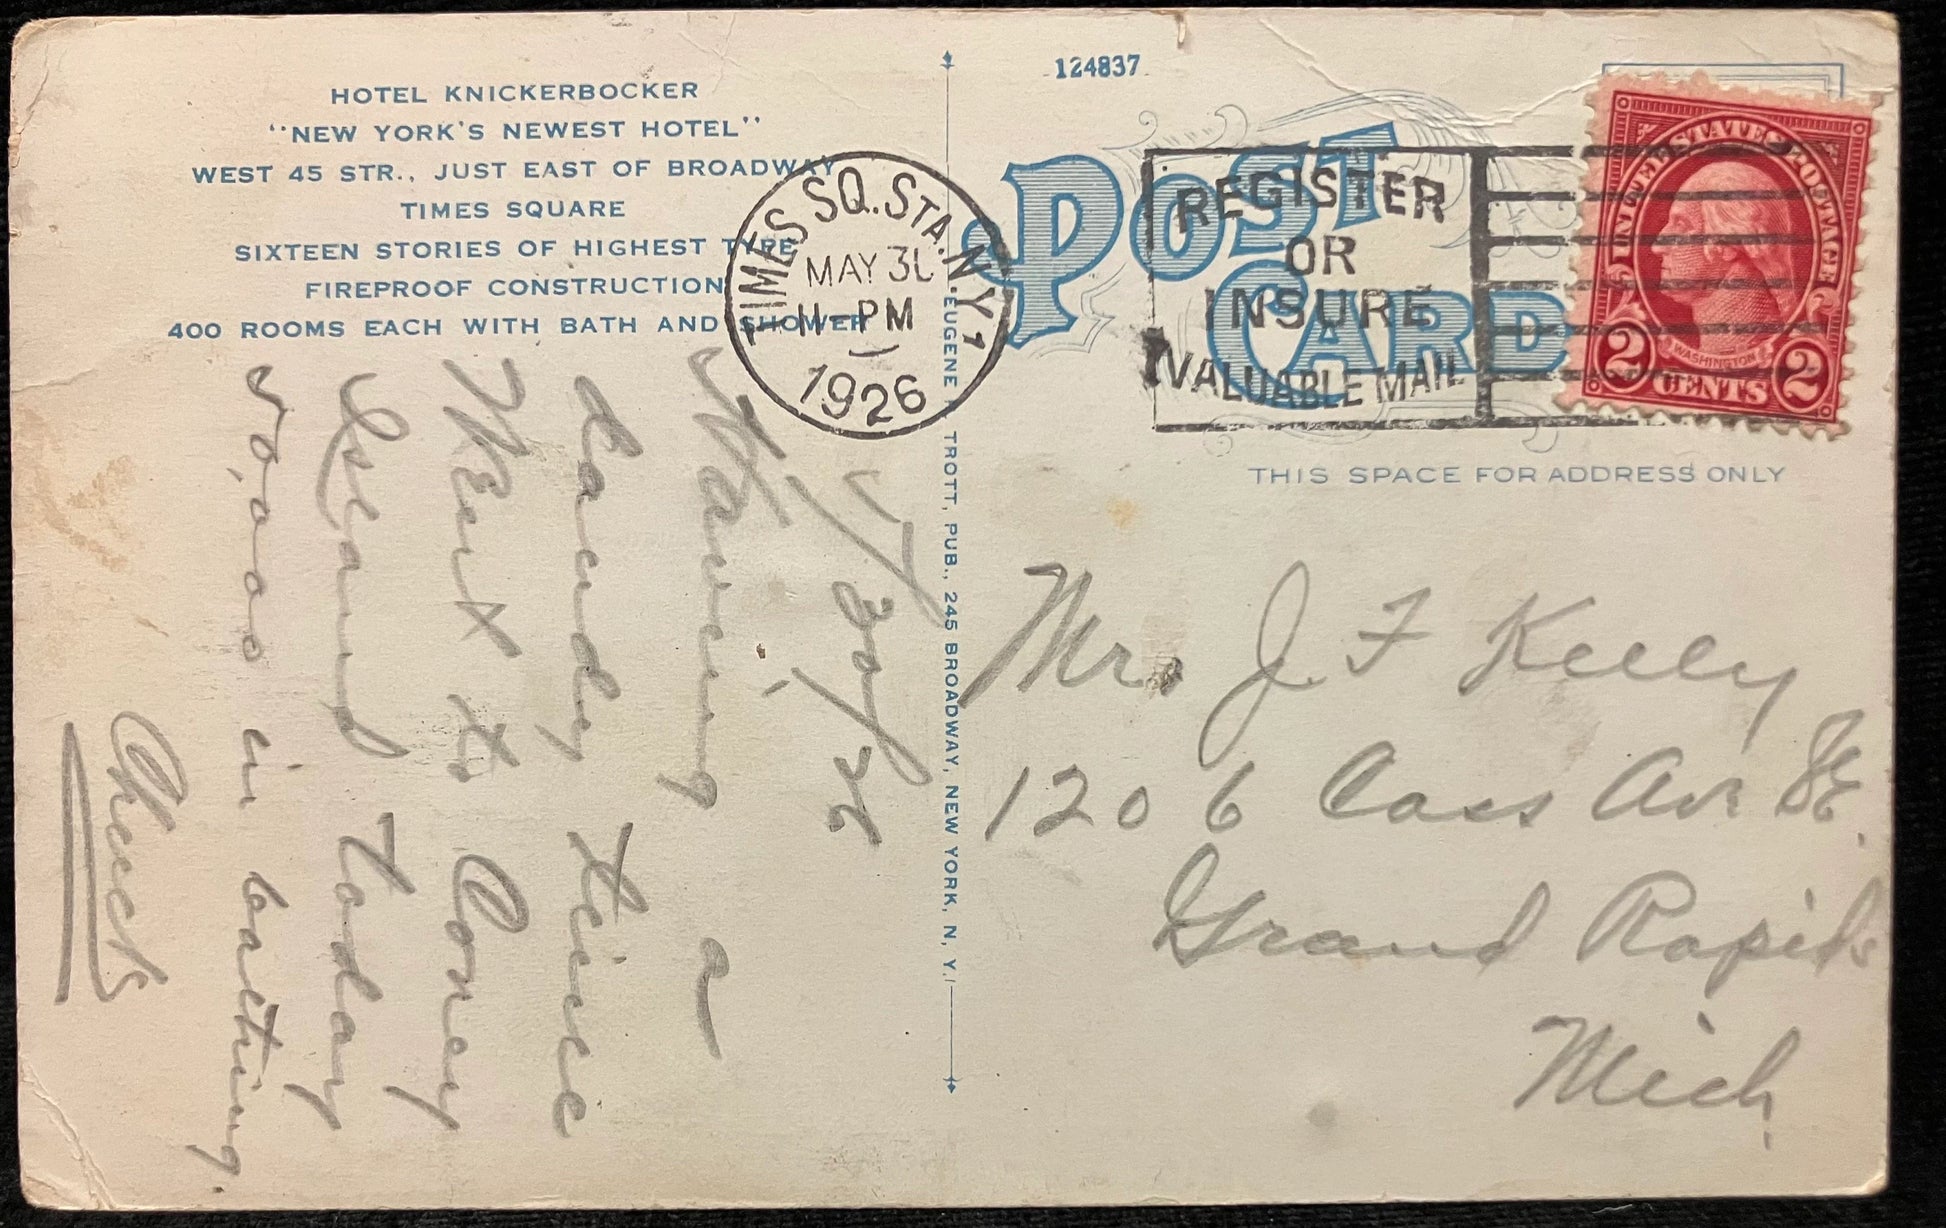 HOTEL KNICKERBOCKER
"NEW YORK'S NEWEST HOTEL"
WEST 45 STR., JUST EAST OF BROADWAY
TIMES SQUARE
SIXTEEN STORIES OF HIGHEST TYPE
FIREPROOF CONSTRUCTION
400 ROOMS EACH WITH BATH AND SHOWER
TIMES SQ. STA. N.Y.
MAY 30
11-PM
1926
30/26
Having a
dandy time
Went to Coney
Island today
50,000 in bathing.
EUGENE TROTT, PUB., 245 BROADWAY, NEW YORK, N. Y.
124837
POST CARD
REGISTER
OR
INSURE
VALUABLE MAIL
UNITED STATES POSTAGE
WASHINGTON
2 CENTS 2
THIS SPACE FOR ADDRESS ONLY
Mr. J. F Kelly
1206 Cass Av. SE.
Grand Rapids
Mich.